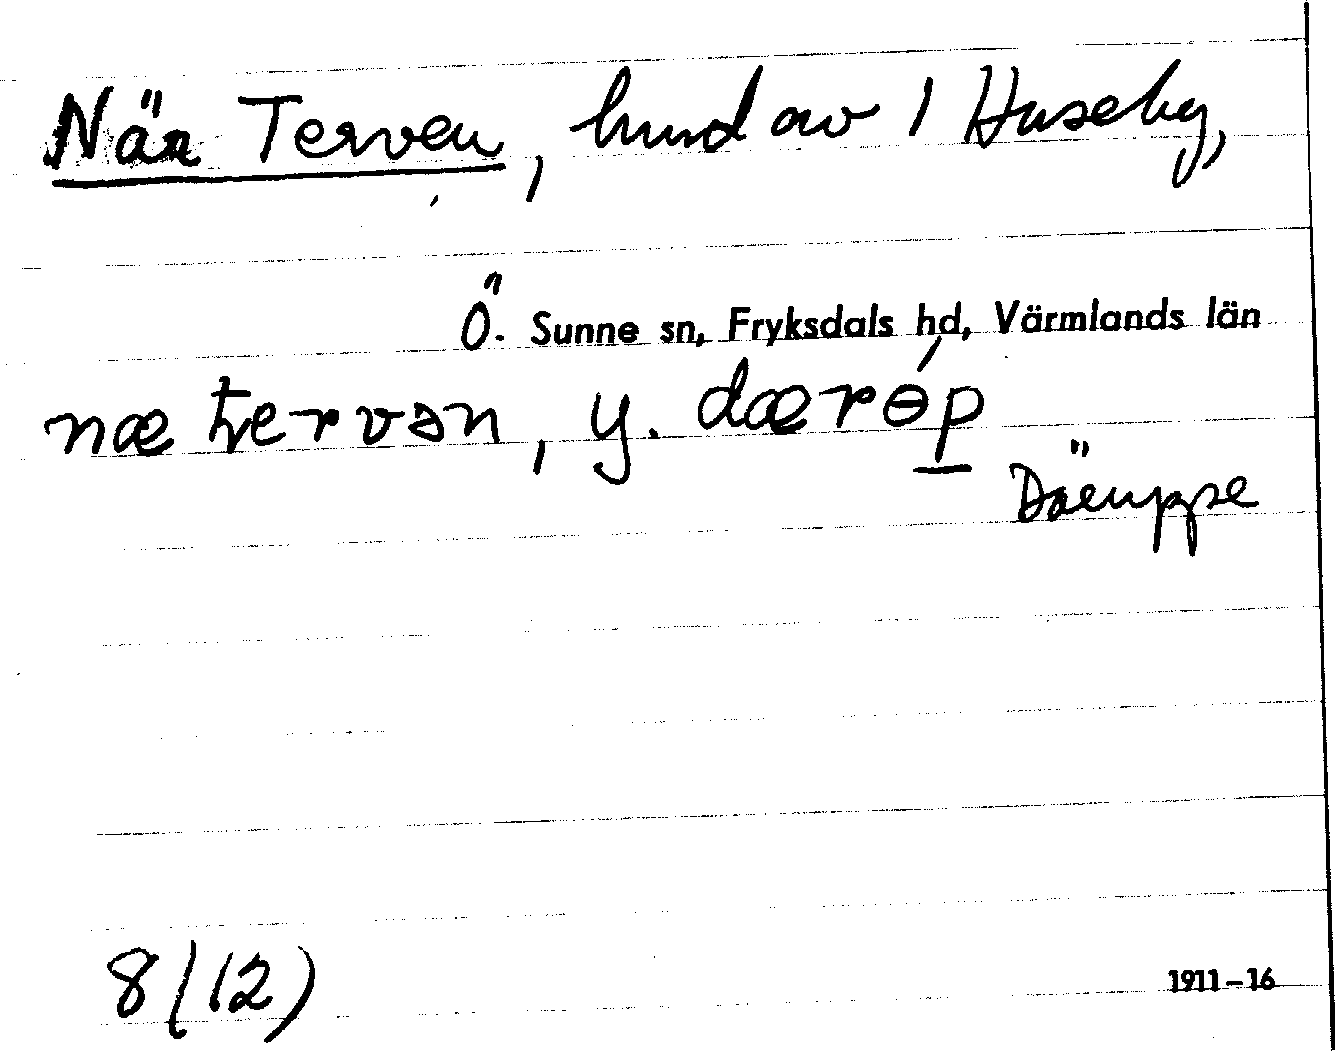 När Terven, hmd av 1 Huseby,
Ö. Sunne sn, Fryksdals hd, Värmlands län
næ tærvən, y. dærɵp
Däruppe
8 (12)
1911–16